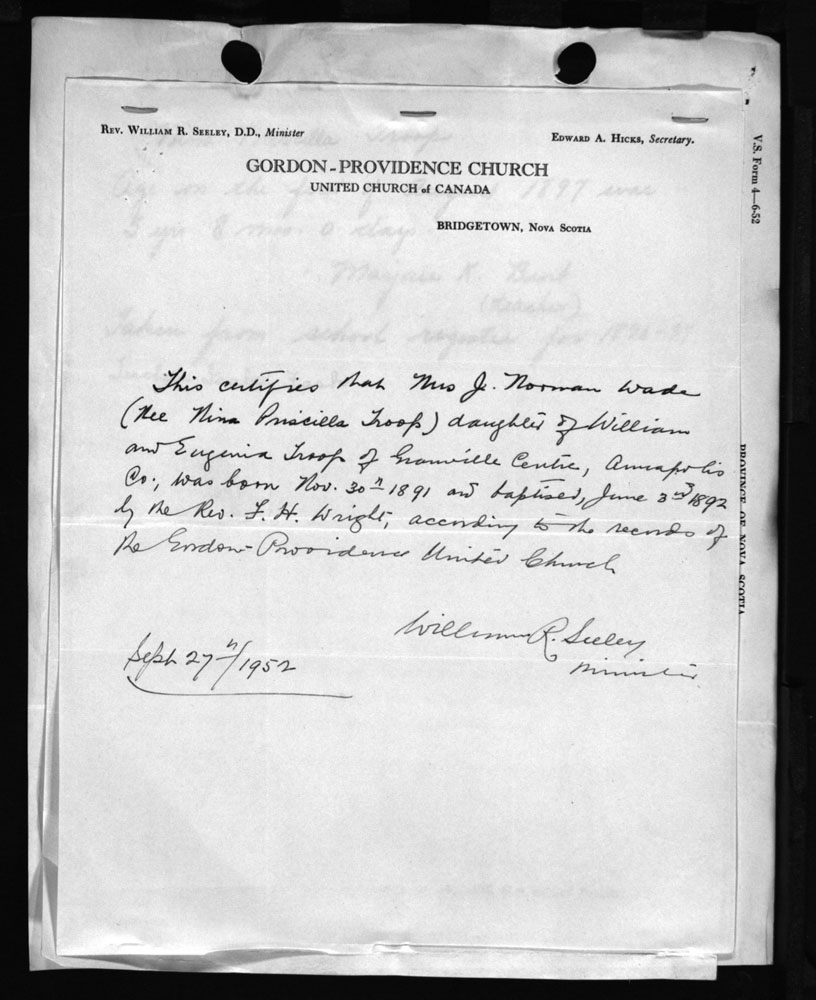 REV. WILLIAM R. SEELEY, D.D., Minister
EDWARD A. HICKS, Secretary.
GORDON-PROVIDENCE CHURCH
UNITED CHURCH of CANADA
BRIDGETOWN, NOVA SCOTIA
Age on the 1897 was
5 yrs 8 mos. 0 days
Marjorie K.
(teacher)
Taken from school register for
This certifies that Mrs J. Norman Wade
(Nee Nina Priscilla Troop) daughter of William
and Eugenia Troop of Granville Centre, Annapolis
Co., was born Nov. 30th 1891 and baptised, June 3rd 1892
by the Rev. F. H. Wright, according to the records of
the Gordon-Providence United Church
William R. Seeley
Minister
Sept 27th/1952
V.S. Form 4—6-52
PROVINCE OF NOVA SCOTIA